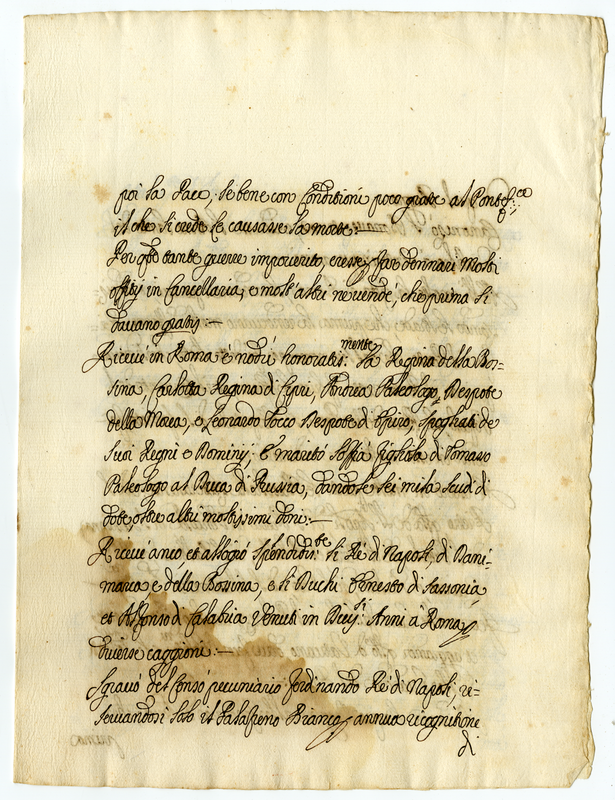 poi la Pace, se bene con Conditioni poco grate al Pontef:ce
il che si crede le causasse la morte:
Per qste tante guerre impouerito, eresse p far dennari Molti
offitij in Cancellaria, e molt'altri ne vendé, che prima si
dauano gratis:—
Riceué in Roma e nodrì honoratis:mente la Regina della Bos-
sina, Carlotta Regina di Cipri, Andrea Paleologo, Despote
della Morea, e Leonardo Tocco Despote d'Epiro, spogliati de
suoi Regni e Dominij; E' maritò Soffia figliola di Tomaso
Paleologo al Duca di Russia, dandole sei mila scudi di
dote, oltre altri moltissimi doni:—
Riceué anco et allogiò splendidis:te li Ré di Napoli, di Dani-
marca e della Bossina, e li Duchi Ernesto di Sassonia
et Alfonso d Calabria venuti in Diey:si Anni à Roma p
diuerse caggioni:—
Sgrauò del Censo pecuniario Ferdinando Ré di Napoli, ri-
seruandosi solo il Palafreno Bianco p annua ricognitione
di